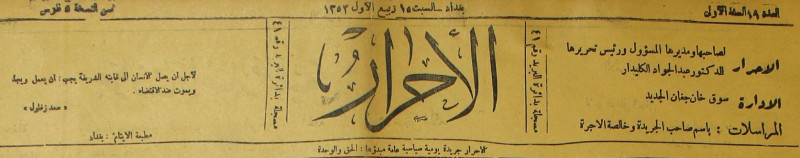 العدد ١٨ السنة الاولى
بغداد - السبت ١٥ ربيع الاول ١٣٥٣
ثمن النسخة ٥ فلوس
الاحرار
لصاحبها ومديرها المسؤول ورئيس تحريرها
الدكتور عبدالجواد الكليدار
الادارة
سوق خان جغان الجديد
المراسلات : باسم صاحب الجريدة وخالصة الاجرة
مسجلة بدائرة البريد رقم ٤١
الأحرار
مسجلة بدائرة البريد رقم ٤١
لاجل ان يصل الانسان الى غايته الشريفة يجب : ان يعمل
ويموت عند الاقتضاء .
« سعد زغلول »
مطبعة الايتام : بغداد
الاحرار جريدة يومية سياسية عامة مبدؤها : الحق والوحدة